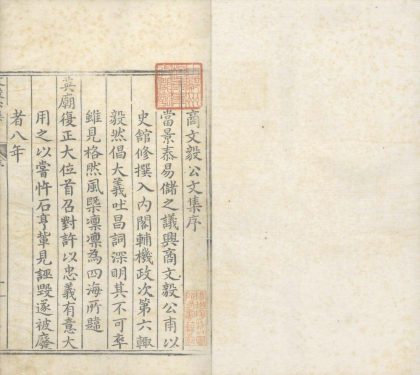 商文毅公文集序
當景泰易儲之議興商文毅公甫以
史館修撰入內閣輔機政次第六輙
毅然倡大義吐昌詞深明其不可率
雖見格然風槩凛凛為四海所韙
英廟復正大位首召對許以忠義有意大
用之以嘗忤石亨輩見誣毀遂被廢
者八年